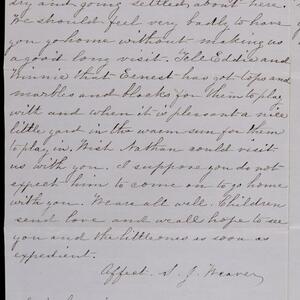 dry and going settled about here.
We should feel very badly to have
you go home without making us
a good long visit. Tell Eddie and
Winnie that Eernest has got tops and
marbles and blocks for them to play
with and when it is pleasant a nice
little yard in the warm sun for them
to play in. Wish Nathan could visit
us with you. I suppose you do not
expect him to come on to go home
with you. We are all well. Children
send love and we all hope to see
you and the little ones as soon as
expedient.
Affect. S. J. Weaver